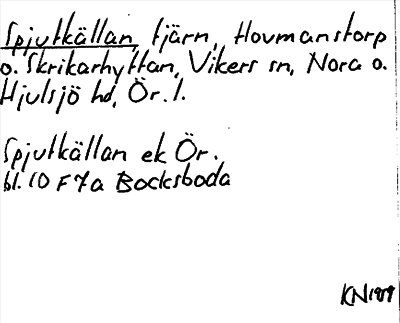 Spjutkällan, tjärn, Hovmanstorp
o. Skrikarhyttan, Vikers sn, Nora o.
Hjulsjö hd, Ör. l.
Spjutkällan ek Ör.
bl. 10 F 7a Bocksboda
KN 1989